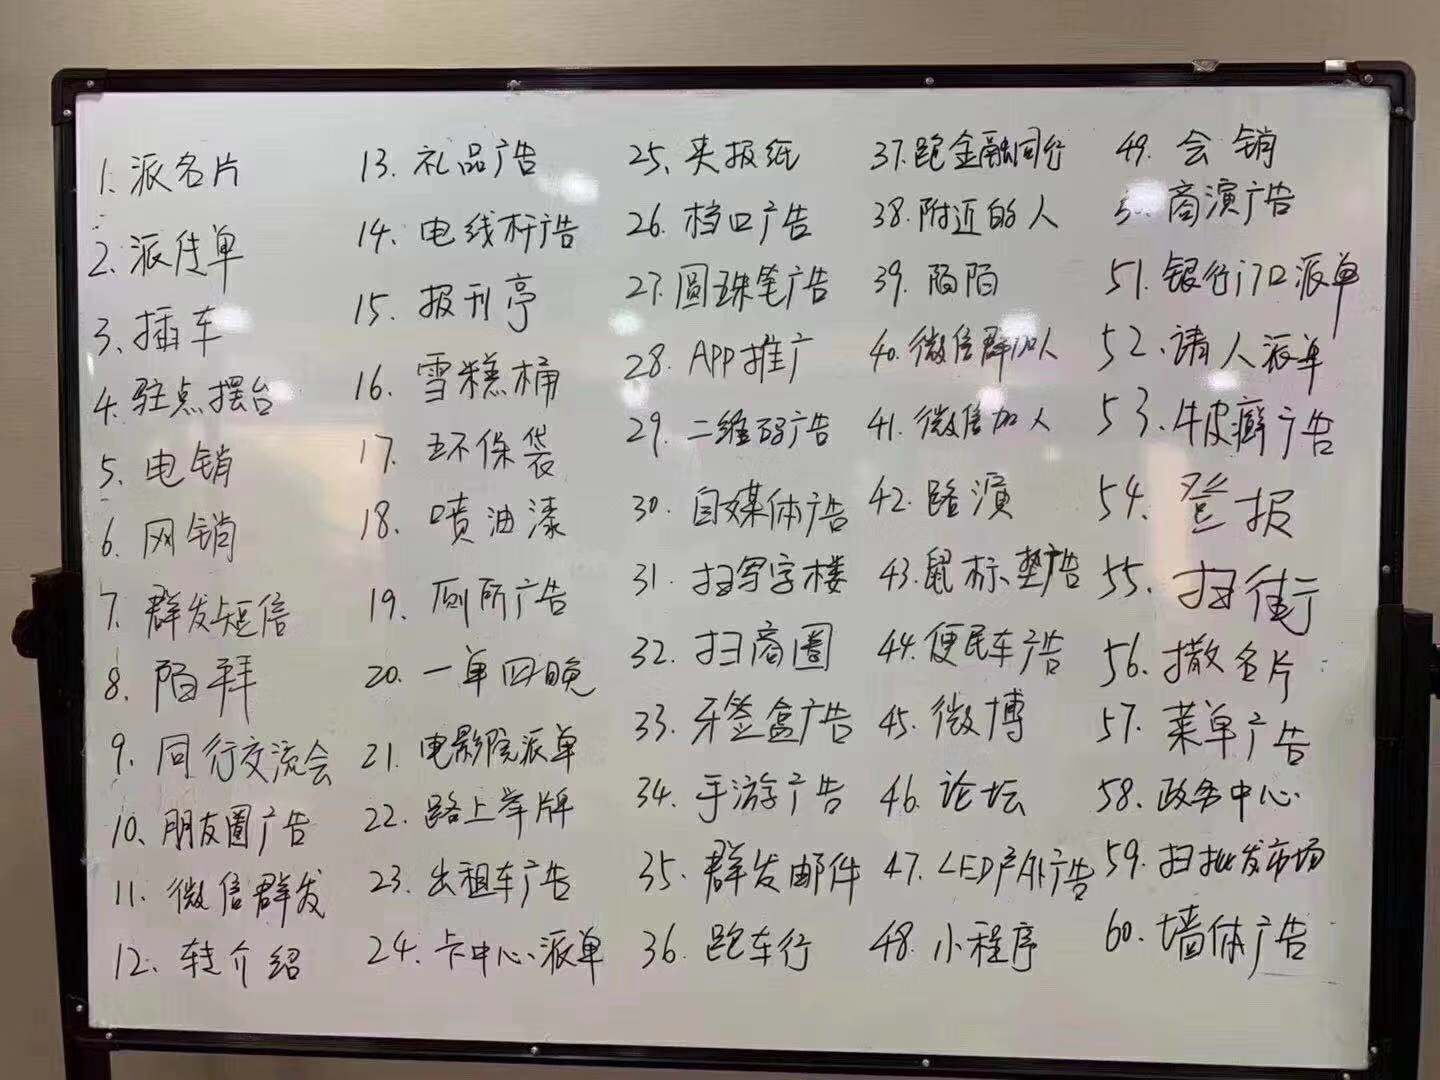 1、派名片
2、派传单
3、插车
4、驻点摆台
5、电销
6、网销
7、群发短信
8、陌拜
9、同行交流会
10、朋友圈广告
11、微信群发
12、转介绍
13、礼品广告
14、电线杆广告
15、报刊亭
16、雪糕桶
17、环保袋
18、喷油漆
19、厕所广告
20、一单四晚
21、电影院派单
22、路上举牌
23、出租车广告
24、卡中心派单
25、夹报纸
26、档口广告
27、圆珠笔广告
28、APP推广
29、二维码广告
30、自媒体广告
31、扫写字楼
32、扫商圈
33、牙签盒广告
34、手游广告
35、群发邮件
36、跑车行
37、跑金融同行
38、附近的人
39、陌陌
40、微信群加人
41、微信加人
42、路演
43、鼠标垫广告
44、便民车广告
45、微博
46、论坛
47、LED户外广告
48、小程序
49、会销
50、商演广告
51、银行门口派单
52、请人派单
53、牛皮癣广告
54、登报
55、扫街
56、撒名片
57、菜单广告
58、政务中心
59、扫批发市场
60、墙体广告